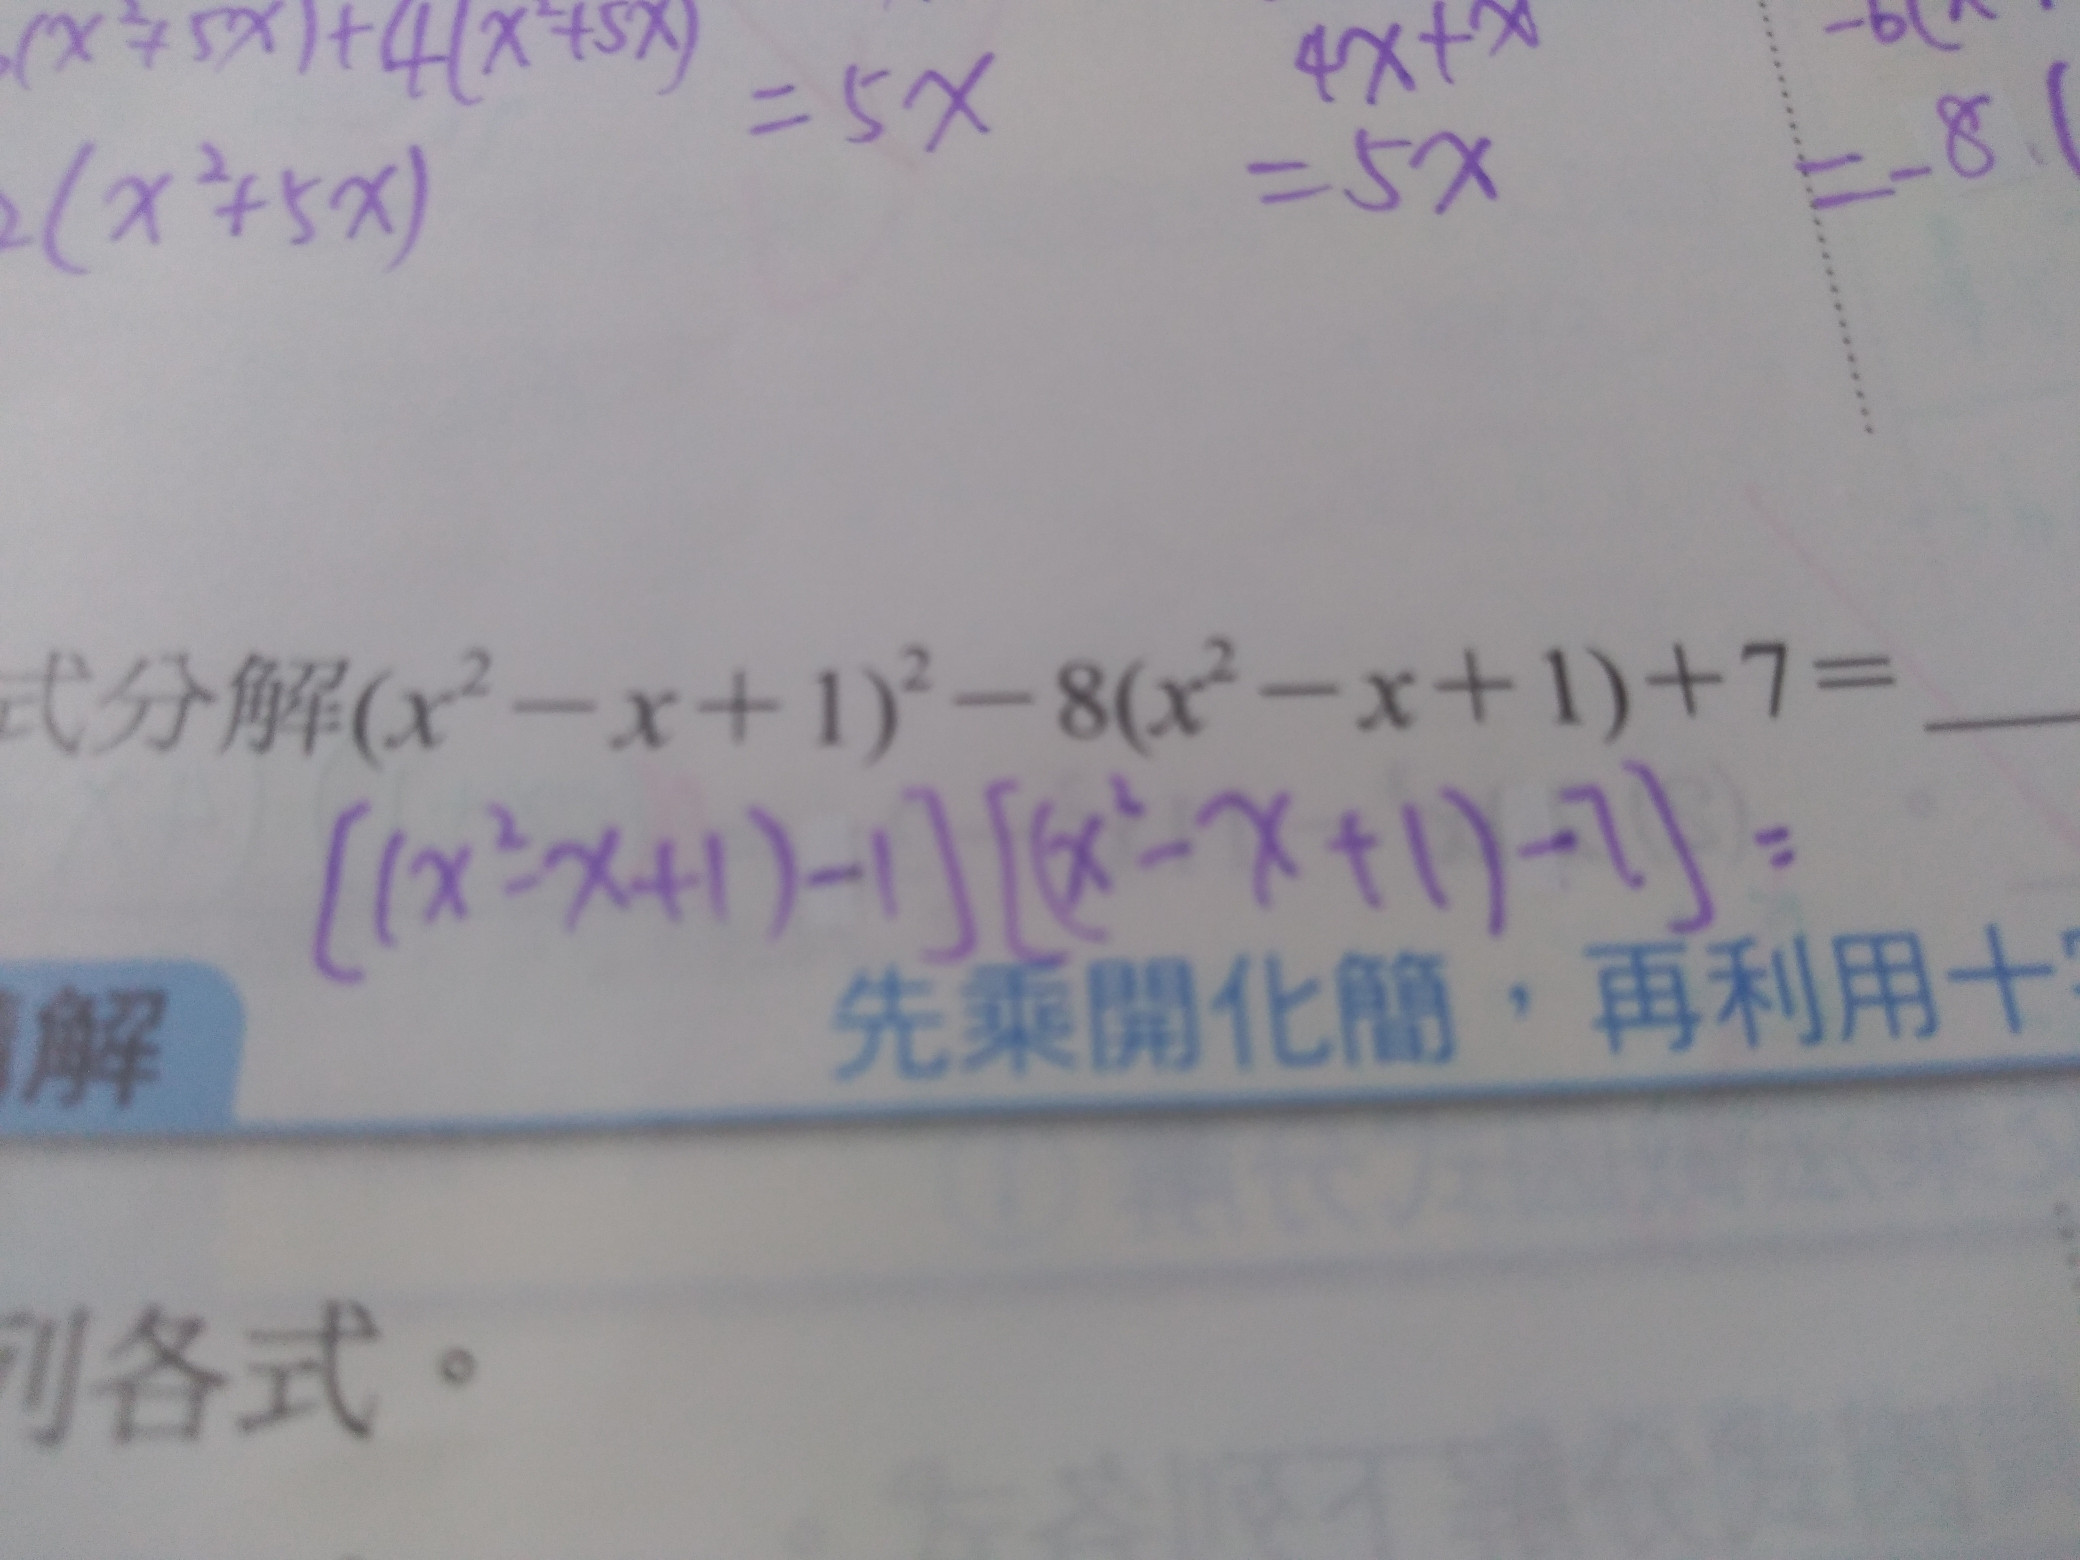 (x²+5x)+4(x²+5x)
4x+x
-6(x
=5x
=5x
=-8(
2(x²+5x)
式分解(x²－x＋1)²－8(x²－x＋1)＋7＝
[(x²-x+1)-1][(x²-x+1)-7]=
解
先乘開化簡，再利用十
列各式。